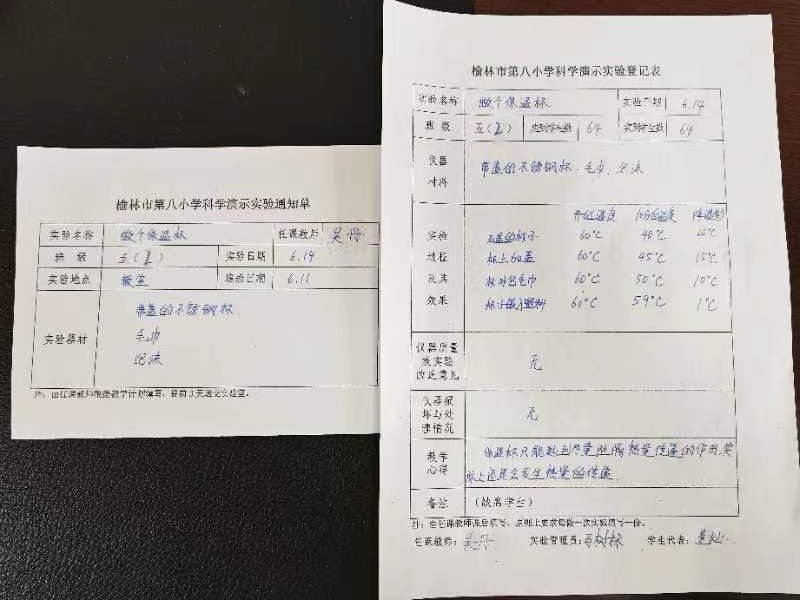 榆林市第八小学科学演示实验通知单
实验名称 做个保温杯 任课教师 吴丹
班 级 五(2) 实验日期 6.14
实验地点 教室 填表日期 6.11
实验器材
带盖的不锈钢杯
毛巾
泡沫
注：由任课教师根据教学计划填写，提前3天送交实验室。
榆林市第八小学科学演示实验登记表
实验名称 做个保温杯 实验日期 6.14
班 级 五(2) 64 64
仪器
材料
带盖的不锈钢杯、毛巾、泡沫
实验
过程
及其
效果
开始温度 10分后温度
无盖的杯子 60°C 40°C
杯上加盖 60°C 45°C 15°C
杯外包毛巾 60°C 50°C 10°C
60°C 59°C 1°C
仪器质量
及实验
改进意见
无
仪器损
坏与处
理情况
无
教学
心得
保温杯只能起到尽量阻隔热量传递的作用,实
际上还是会发生热量的传递
备注 (缺席学生)
注：由任课教师课后填写，原则上要求每做一次实验填写一份。
任课教师：吴丹 实验管理员：马树林 学生代表：